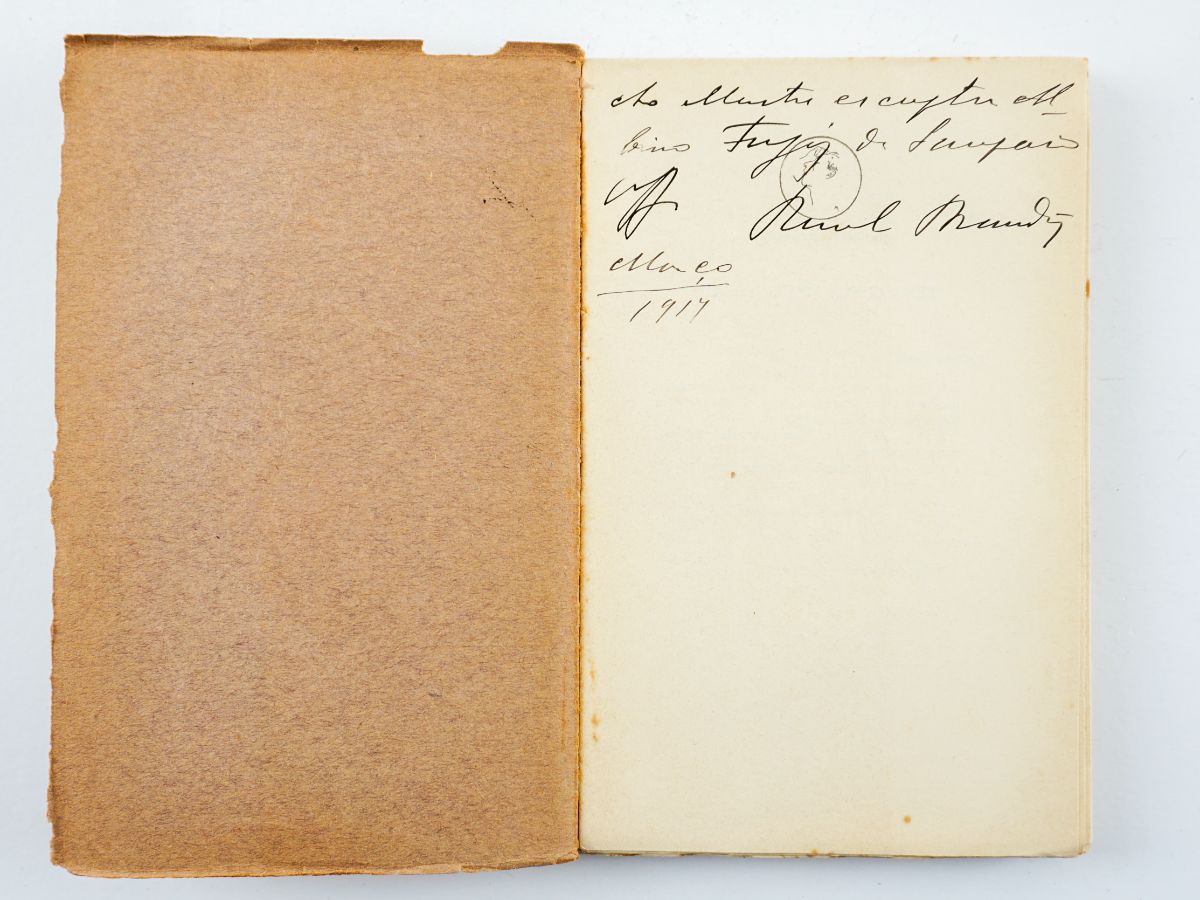 Ao illustre escriptor Al-
bino Forjaz de Sampaio
off
Raul Brandão
Março
1917